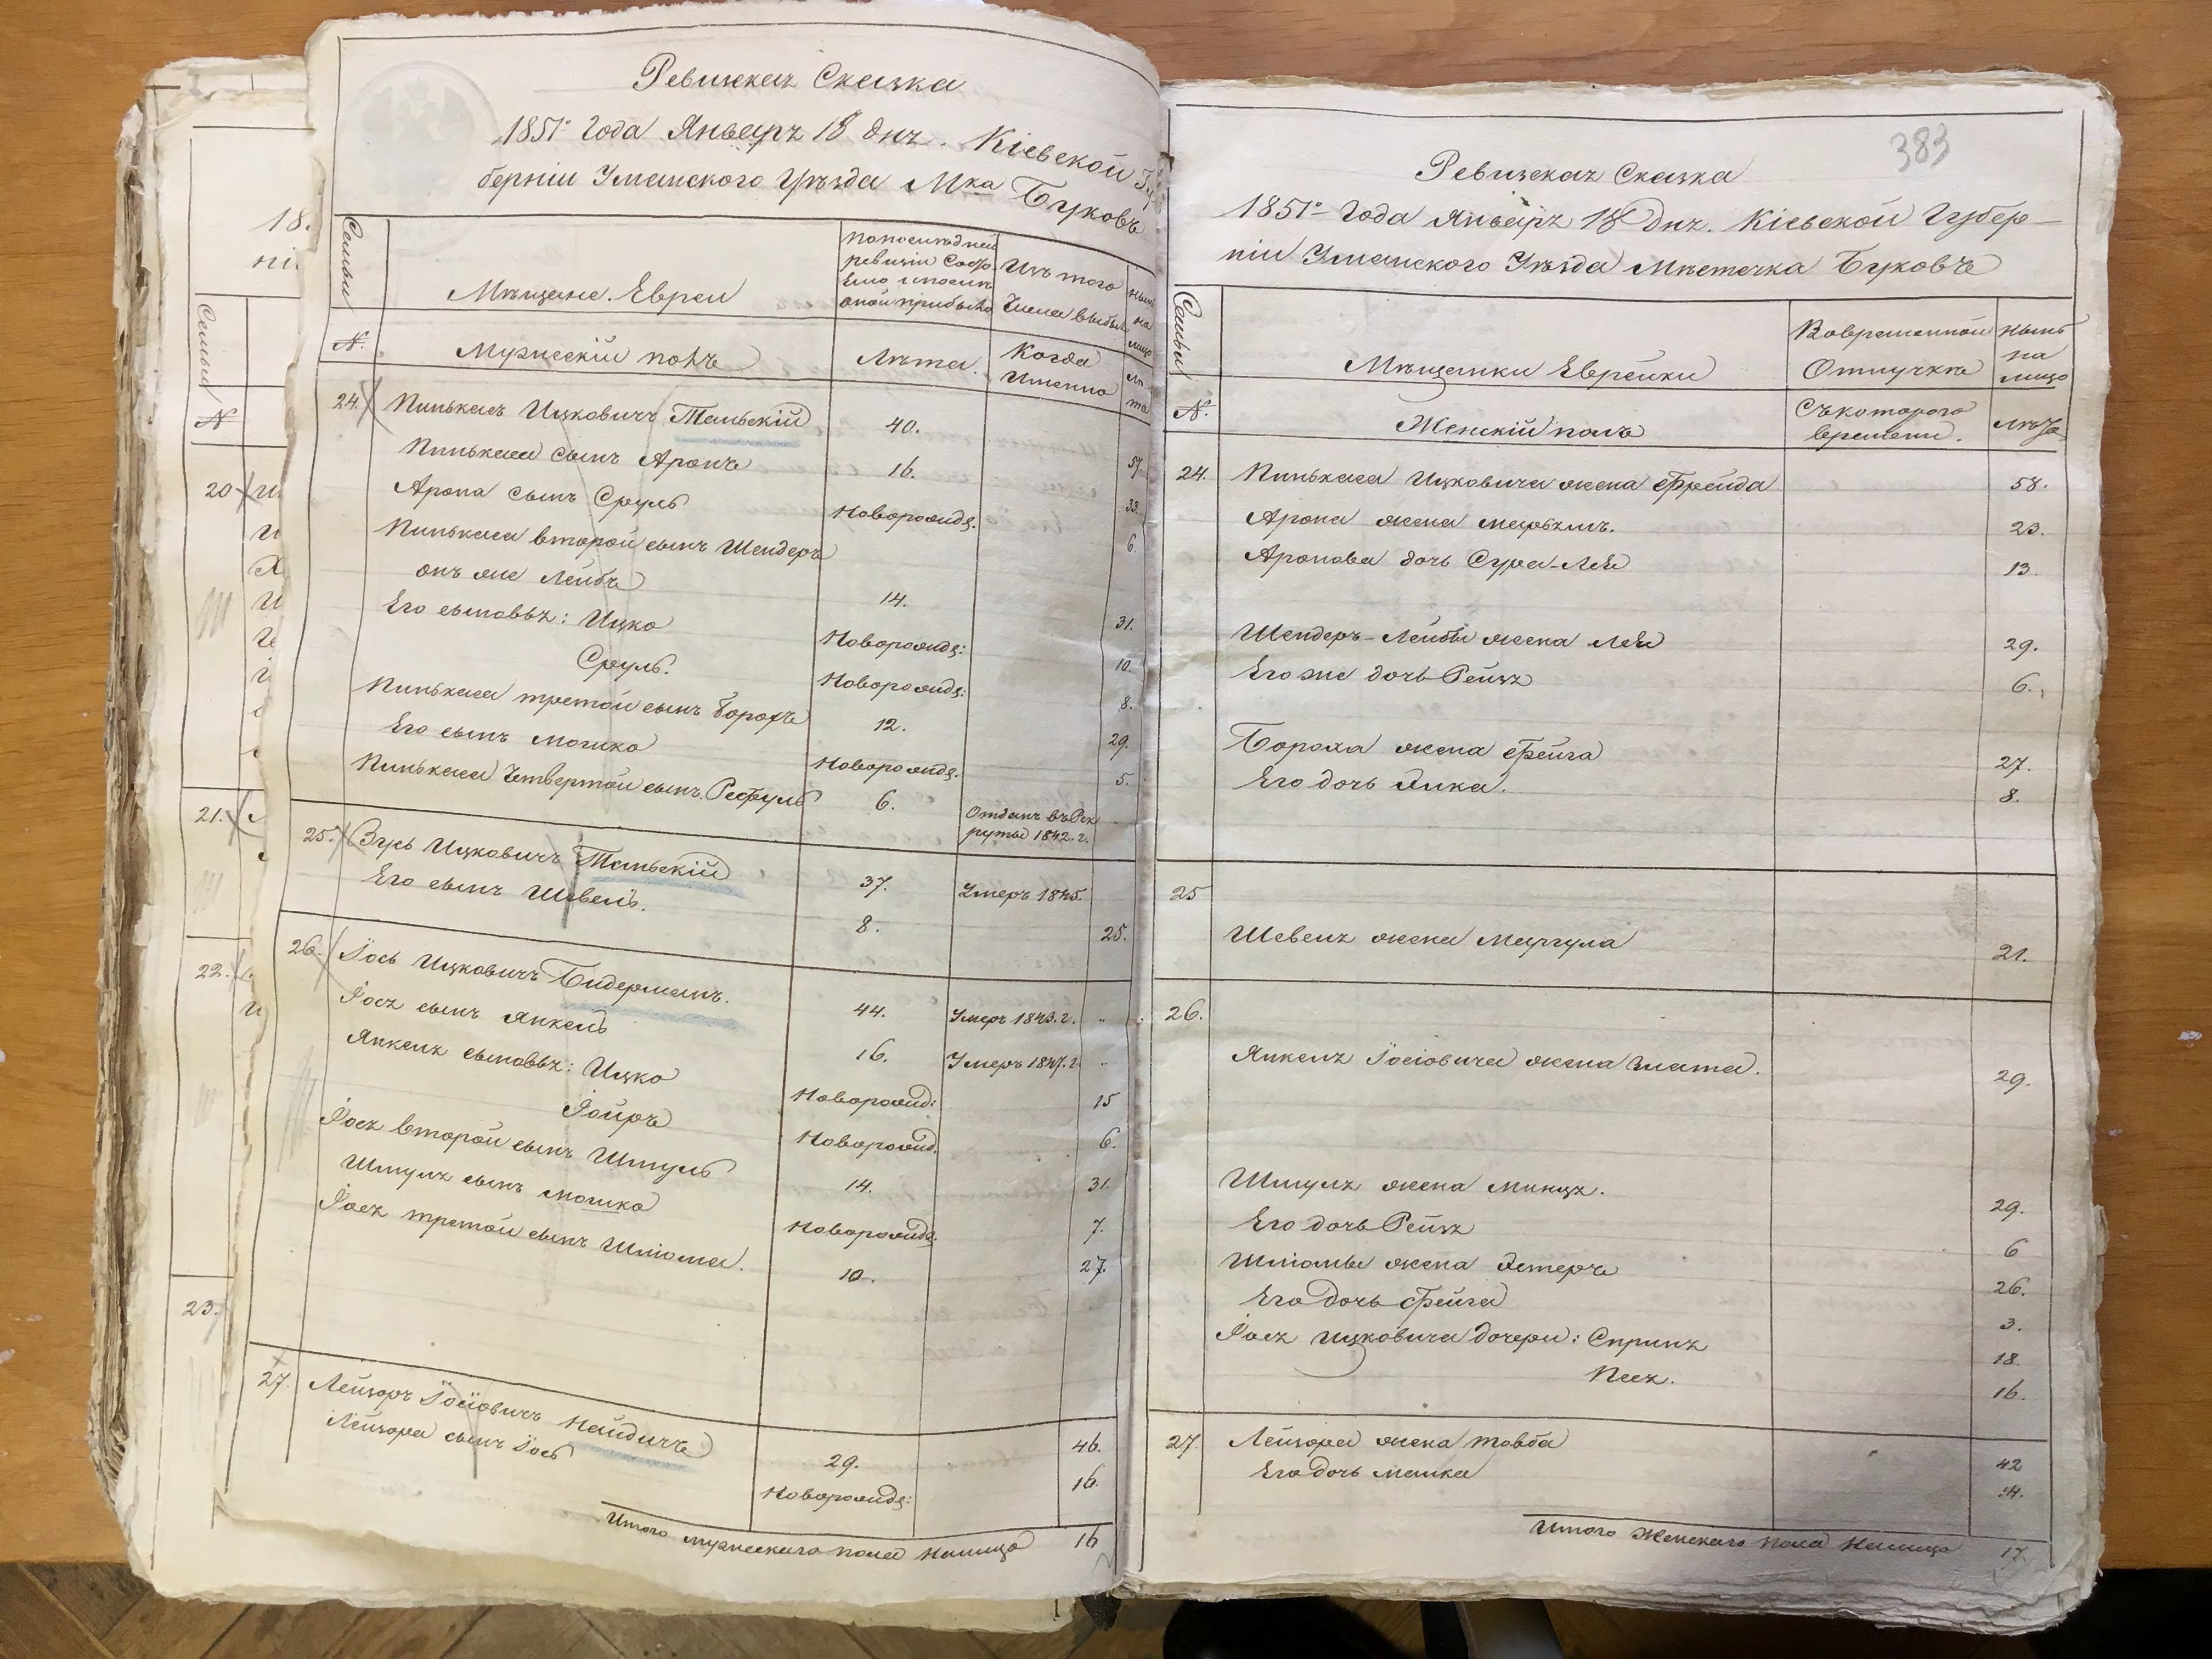 Ревижская Сказка
1851го Года Января 18 дня. Кіевской Гу-
берніи Уманского Уѣзда Мка Буковъ
Семьи
Мѣщане. Евреи
попослѣдней
ревизіи Состо
яло и послѣ
оной прибыло
Изъ того
Числа выбыло
Нынѣ
на
лицо
№.
Мужескій полъ
Лѣта.
Когда
Именно
Лѣ
та
24. Пинькасъ Ицковичъ Таньскій 40. 57.
Пинькаса сынъ Аронъ 16. 33.
Арона сынъ Сруль Новорожд. 6.
Пинькаса второй сынъ Шендеръ
онъ же Лейбъ 14. 31.
Его сыновья: Ицко Новорожд: 10.
Сруль. Новорожд: 8.
Пинькаса третой сынъ Борохъ 12. 29.
Его сынъ Мошко Новорожд. 5.
Пинькаса Четвертой сынъ Рефуль 6. Отданъ въ Рек
руты 1842. г.
25. Зусь Ицковичъ Таньскій 37. Умеръ 1845.
Его сынъ Шевель. 8. 25.
26. Іось Ицковичъ Бидерманъ. 44. Умеръ 1843. г.
Іося сынъ Янкель 16. Умеръ 1847. г.
Янкеля сыновья: Ицко Новорожд: 15
Іойръ Новорожд. 6.
Іося второй сынъ Шмуль 14. 31.
Шмуля сынъ Мошко Новорожд. 7.
Іося третой сынъ Шліома. 10. 27.
27. Лейзоръ Іосіовичъ Найдичъ 29. 46.
Лейзора сынъ Іось Новорожд: 16.
Итого мужескаго пола Налицо 16
383
Ревижская Сказка
1851го Года Января 18 Дня. Кіевской Губер-
ніи Уманского Уѣзда Мѣстечка Буковъ
Семьи
Мѣщанки Еврейки
Вовременной
Отлучкѣ
Нынѣ
на
лицо
№.
Женскій полъ
Съкоторого
времени.
Лѣта
24. Пинькаса Ицковича жена Фрейда 58.
Арона жена Маріямъ. 23.
Аронова дочь Сура-Лея 13.
Шендеръ-Лейбы жена Лея 29.
Его же дочь Рейзя 6.
Бороха жена Фейга 27.
Его дочь Элка. 8.
25
Шевеля жена Маргула 21.
26.
Янкеля Іосіовича жена Злата. 29.
Шмуля жена Минця. 29.
Его дочь Рейзя 6
Шліомы жена Эстеръ 26.
Его дочь Фейга 3.
Іося Ицковича дочери: Сприня 18.
Песя. 16.
27. Лейзора жена Товба 42
Его дочь Малка 14.
Итого Женскаго пола Налицо 17.
18.
ні.
Семьи
№
20
21.
22.
23.